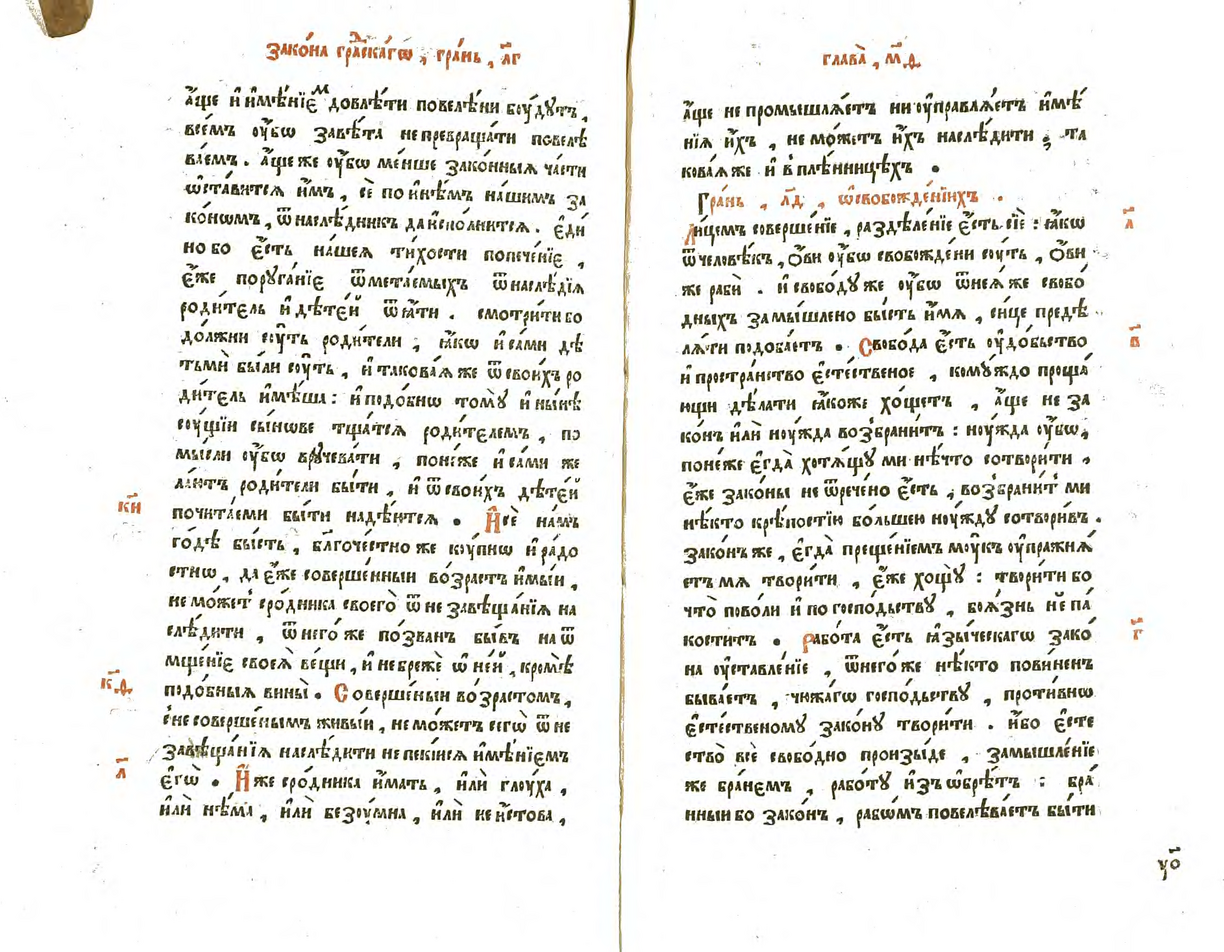 Зако́на гра́дскагѡ , гра́нь , л҃г
а҆́ще и҆ и҆мѣ́нїем довлѣ́ти повелѣ́ни бꙋ́дꙋтъ ,
всѣ́мъ ᲂу҆́бѡ завѣ́та не превраща́ти повелѣ
ва́емъ . а҆́ще же ᲂу҆́бѡ ме́нше зако́нныѧ ча́сти
ѡ҆ста́витсѧ и҆̀мъ , сѐ по и҆нѣ́мъ на́шимъ за
ко́нѡмъ , ѿ наслѣ́дникъ да и҆спо́лнитсѧ . є҆ди́
но бо є҆́сть на́шеѧ ти́хости попече́нїе ,
є҆́же порꙋга́нїе ѿмета́емыхъ ѿ наслѣ́дїѧ
роди́тель и҆ дѣте́й ѿѧ́ти . смотри́ти бо
до́лжни сꙋ́ть роди́тели , ꙗ҆́кѡ и҆ са́ми дѣ
тьмѝ бы́ли сꙋ́ть , и҆ такова́ѧ же ѿ свои́хъ ро
ди́тель и҆мѣ́ша : и҆ подо́бнѡ томꙋ̀ и҆ ны́нѣ
сꙋ́щїи сы́нове тща́тсѧ роди́телемъ , по
мы́сли ᲂу҆́бѡ врꙋчева́ти , поне́же и҆ са́ми же
ла́ютъ роди́тели бы́ти , и҆ ѿ свои́хъ дѣте́й
кн҃
почита́еми бы́ти надѣ́ютсѧ . И҆ сѐ на́мъ
го́дѣ бы́сть , бл҃гоче́стно же кꙋ́пнѡ и҆ ра́до
стнѡ , да є҆́же соверше́нныи во́зрастъ и҆мы́и ,
не мо́жетъ сро́дника своего̀ ѿ не завѣща́нїѧ на
слѣ́дити , ѿ него́ же по́званъ бы́въ на ѿ
мще́нїе своеѧ̀ ве́щи , и҆ небреже ѡ҆ не́й , кромѣ̀
к҃ѳ
подо́бныѧ вины̀ . Соверше́ныи во́зрастомъ ,
с не соверше́нымъ живы́и , не мо́жетъ сегѡ̀ ѿ не
завѣща́нїѧ наслѣ́дити не пекі́исѧ и҆мѣ́нїемъ
л҃
є҆гѡ̀ . И҆́же сро́дника и҆́мать , и҆лѝ глꙋ́ха ,
и҆лѝ нѣ́ма , и҆лѝ безꙋ́мна , и҆лѝ неи́стова ,
глава̀ , м҃ѳ
а҆́ще не промышлѧ́етъ ни ᲂу҆правлѧ́етъ и҆мѣ́
нїѧ и҆́хъ , не мо́жетъ и҆́хъ наслѣ́дити , та
кова́ѧ же и҆ в плѣ́нницѣхъ .
Гра́нь , л҃д , ѡ҆ свобожде́нїихъ .
а҃
Лице́мъ соверше́нїе , раздѣле́нїе є҆́сть сїѐ : ꙗ҆́кѡ
ѿ человѣ́къ , ѻ҆́ви ᲂу҆́бѡ свобожде́ни сꙋ́ть , ѻ҆́ви
же рабѝ . и҆ свобо́дꙋ же ᲂу҆́бѡ ѿ неѧ́ же свобо́
дныхъ замы́шлено бы́сть и҆́мѧ , си́це предѣ
в҃
лѧ́ти подоба́етъ . Свобо́да є҆́сть ᲂу҆до́бьство
и҆ простра́нство є҆сте́ственое , комꙋ́ждо проща́
ющи дѣ́лати ꙗ҆́коже хо́щетъ , а҆́ще не за
ко́нъ и҆лѝ нꙋ́жда возбрани́тъ : нꙋ́жда ᲂу҆́бѡ ,
поне́же є҆гда̀ хотѧ́щꙋ ми нѣ́что сотвори́ти ,
є҆́же зако́ны не ѿрече́но є҆́сть , возбрани́т ми
нѣ́кто крѣ́постїю бо́льшею нꙋ́ждꙋ сотвори́въ .
зако́нъ же , є҆гда̀ преще́нїемъ мꙋ́къ ᲂу҆пражнѧ́
етъ мѧ твори́ти , є҆́же хощꙋ̀ : твори́ти бо
что̀ по во́ли и҆ по госпо́дьствꙋ , боѧ́знь не па́
г҃
коститъ . Рабо́та є҆́сть ꙗ҆зы́ческагѡ зако́
на ᲂу҆ставле́нїе , ѿ него́ же нѣ́кто пови́ненъ
быва́етъ , чюжа́гѡ госпо́дьствꙋ , проти́внѡ
є҆сте́ственомꙋ зако́нꙋ твори́ти . и҆́бо є҆сте
ство̀ всѐ свобо́дно произы́де , замышле́нїе
же бра́немъ , рабо́тꙋ и҆зъѡбрѣ́тъ : бра́
нныи бо зако́нъ , рабѡ́мъ повелѣва́етъ бы́ти
уо҃